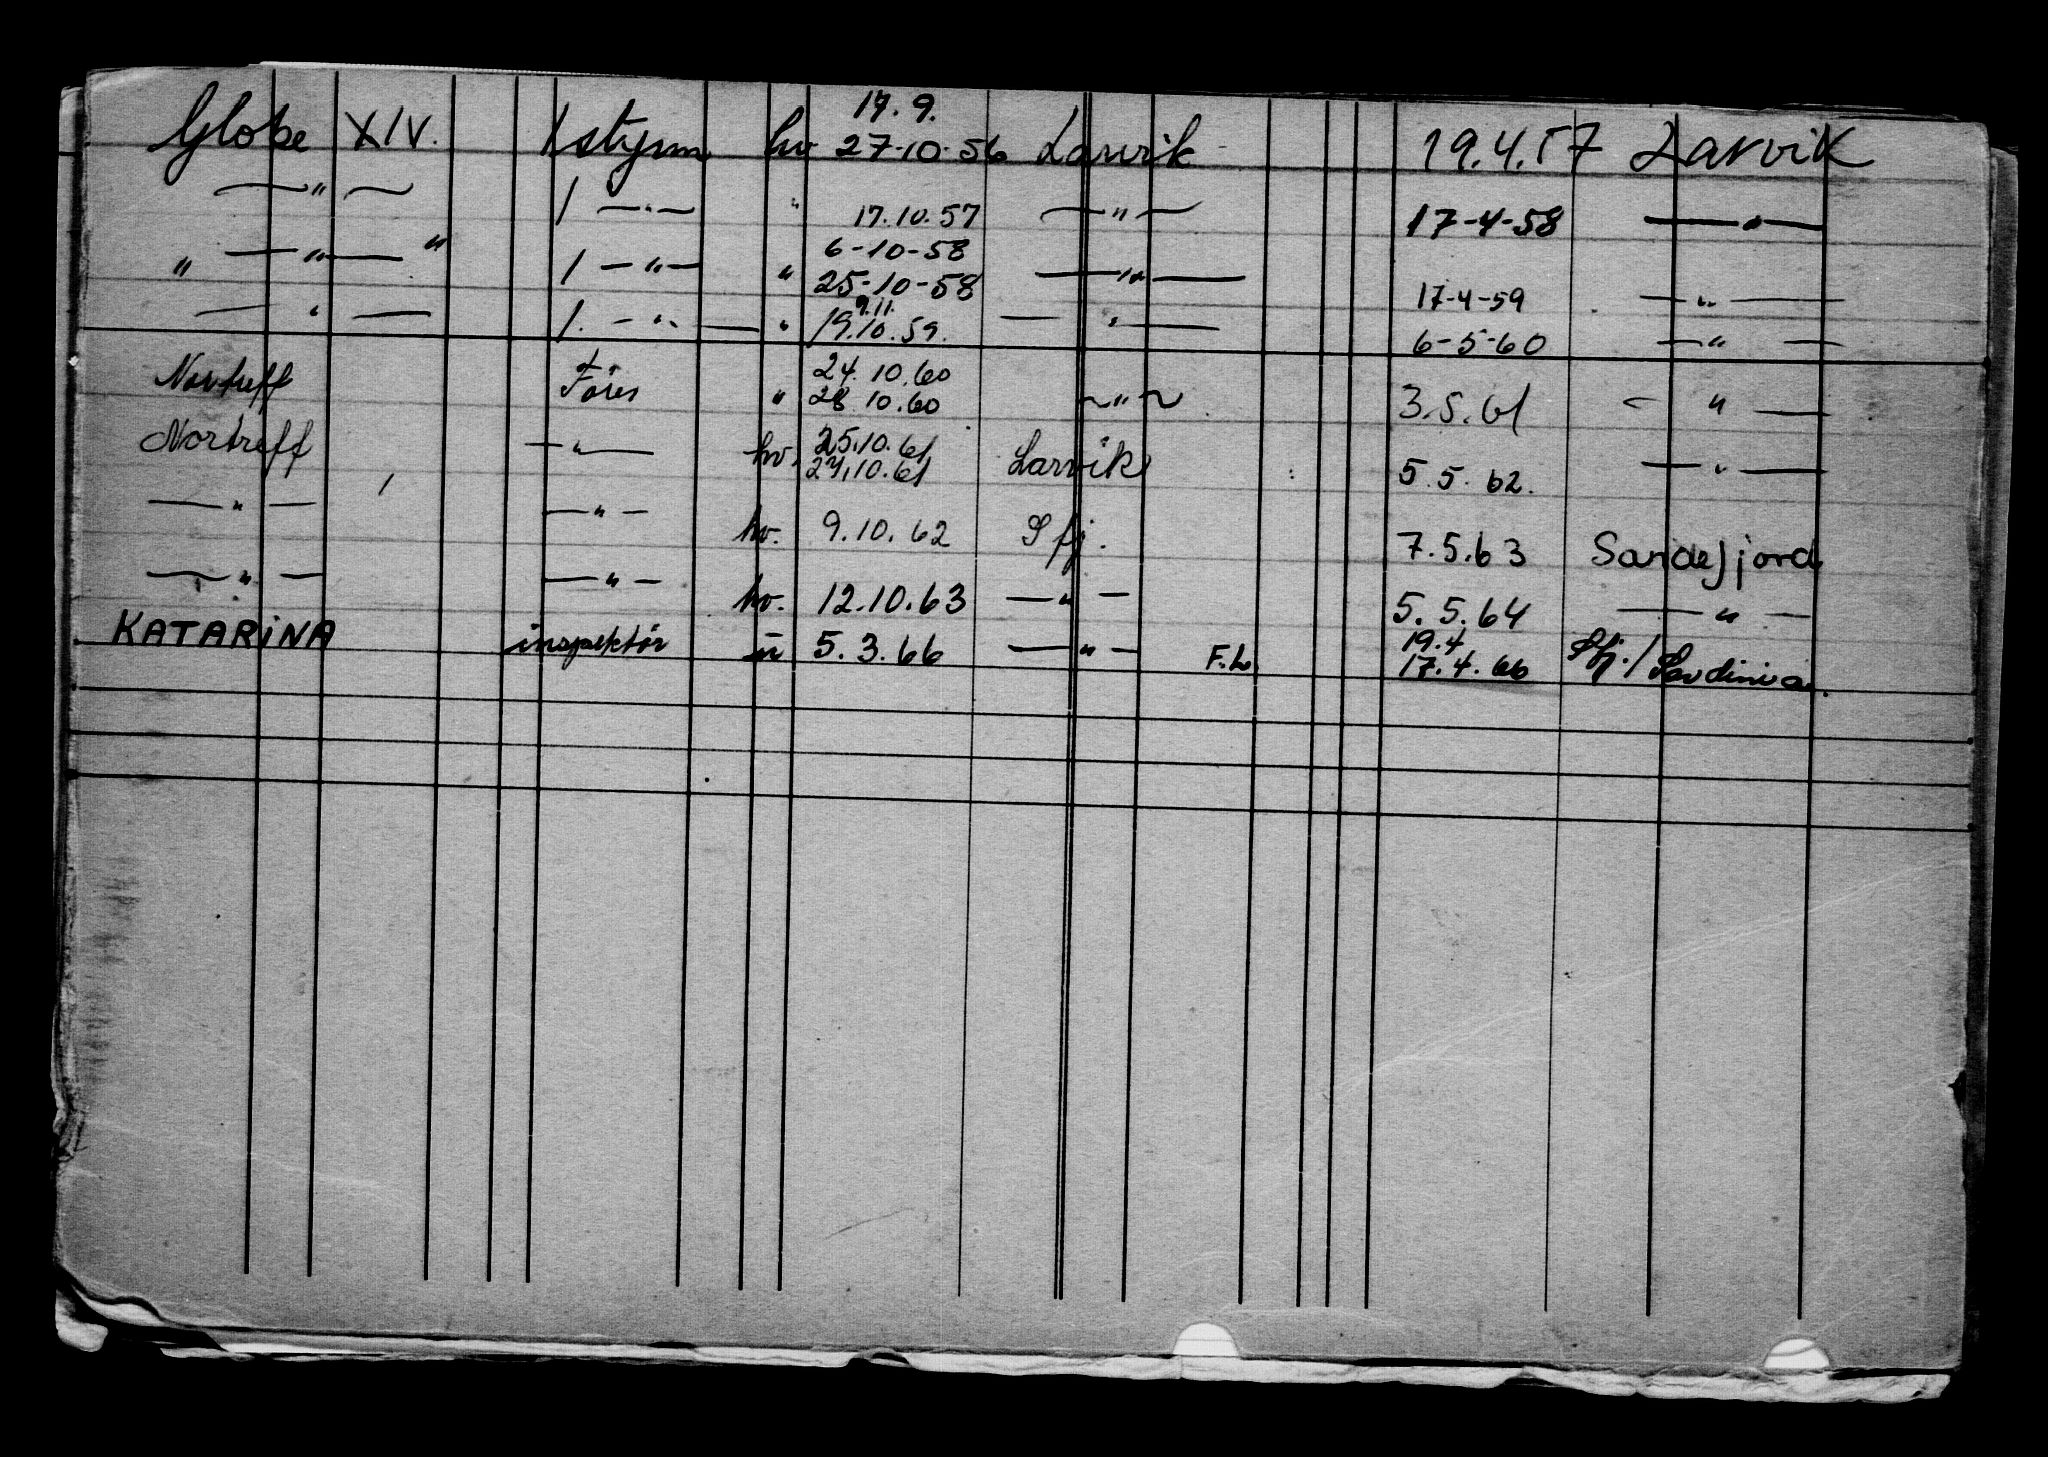 17.9.
Globe XIV. 1 styrm hv 27-10-56 Larvik 19.4.57 Larvik
— " — 1 — " — " 17.10.57 — " — 17-4-58 — " —
6-10-58
" — " — " 1 — " — " 25-10-58 — " — 17-4-59 — " —
9.11.
— " — 1. — " — " 19.10.59. — " — 6-5-60 — " —
24.10.60
Nortreff Föres " 28.10.60 — " — 3.5.61 — " —
25.10.61
Nortreff — " — hv. 27.10.61 Larvik 5.5.62. — " —
— " — — " — hv. 9.10.62 Sfj. 7.5.63 Sandefjord
— " — — " — hv. 12.10.63 — " — 5.5.64 — " —
19.4
KATARiNA inspektör u 5.3.66 — " — F.h 17.4.66 Sfj./Sardinia.